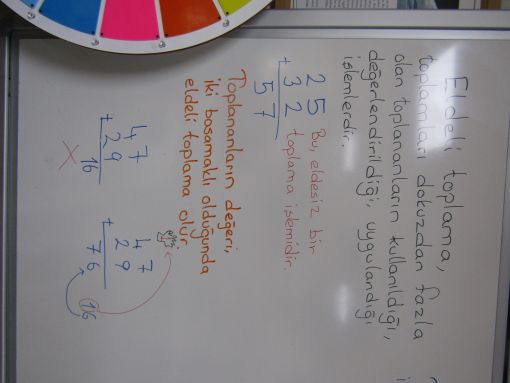 Eldeli toplama,
toplamları dokuzdan fazla
olan toplananların kullanıldığı,
değerlendirildiği, uygulandığı
işlemlerdir.
25
+ 32
57
Bu, eldesiz bir
toplama işlemidir.
Toplananların değeri,
iki basamaklı olduğunda
eldeli toplama olur.
47
+ 29
16
X
47
+ 29
76
16